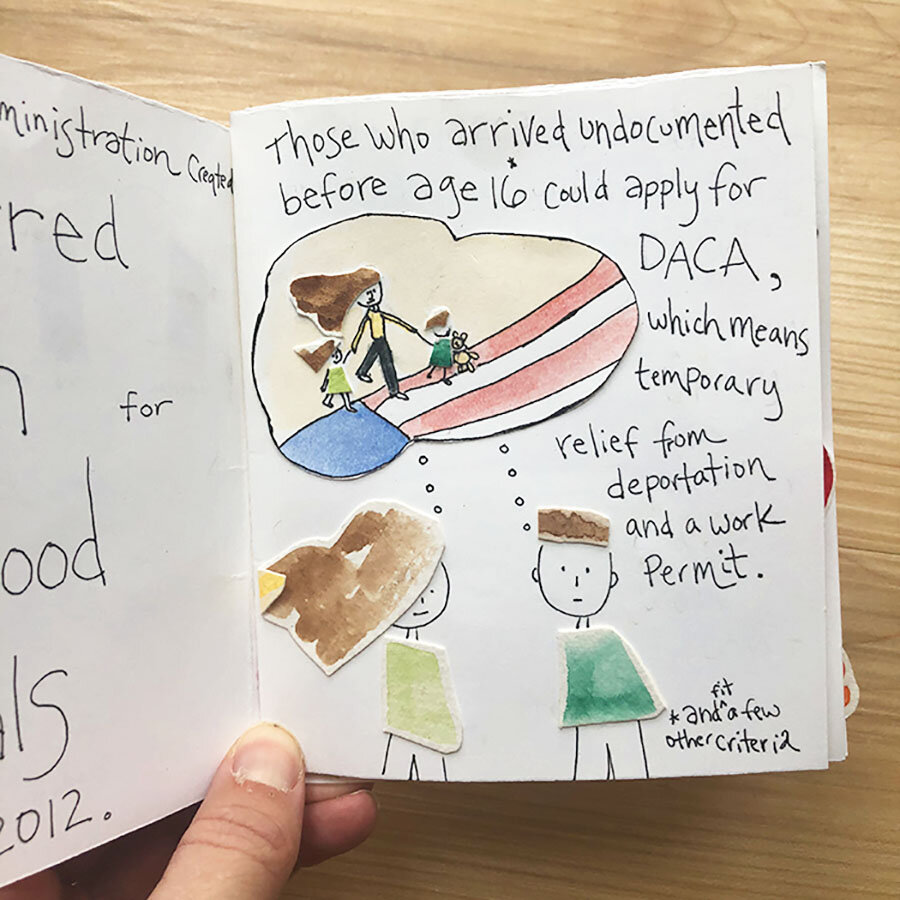 ministration Created
red
n for
ood
ls
2012.
Those who arrived undocumented
before age 16* could apply for
DACA,
which means
temporary
relief from
deportation
and a work
Permit.
*and fit a few
other criteria